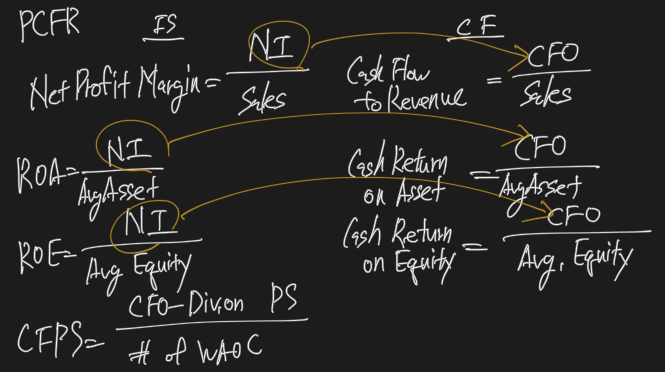 PCFR IS CF
Net Profit Margin = NI / Sales
Cash Flow to Revenue = CFO / Sales
ROA = NI / Avg Asset
Cash Return on Asset = CFO / Avg Asset
ROE = NI / Avg Equity
Cash Return on Equity = CFO / Avg. Equity
CFPS = CFO - Div. on PS / # of WAOC